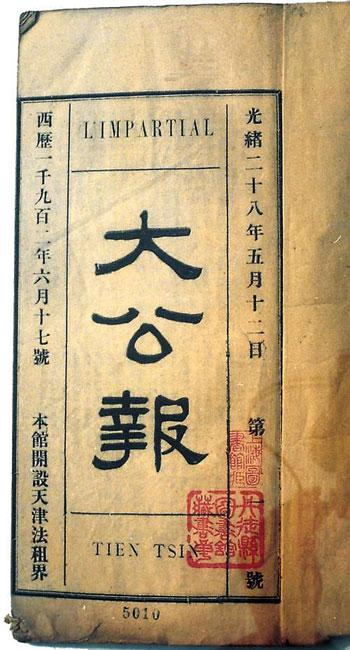 光緒二十八年五月十二日 第一號
L'IMPARTIAL
大公報
TIEN TSIN
西歷一千九百二年六月十七號 本館開設天津法租界
5010